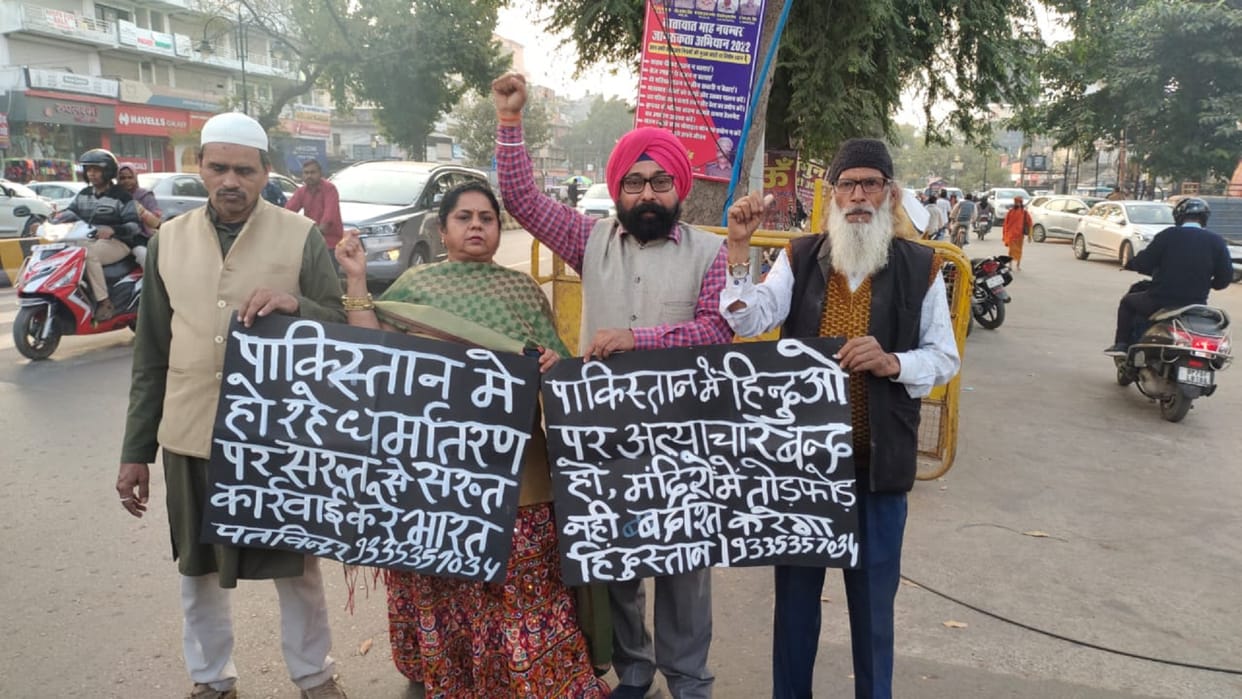 यातायात माह नवम्बर
जागरूकता अभियान 2022
HAVELLS GALAXY
ॐ
पाकिस्तान मे
हो रहे धर्मातरण
पर सख्त से सख्त
कार्रवाई करे भारत
पतविन्दर 9335357034
पाकिस्तान में हिन्दुओ
पर अत्याचार बन्द
हो, मंदिरों में तोड़फोड़
नही बर्दाश्त करेगा
हिंदुस्तान] 9335357034